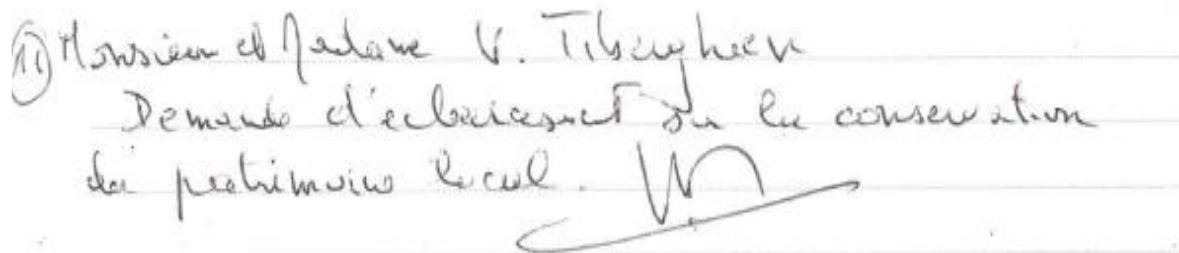 11 Monsieur et Madame V. Tiberghien
Demande d'eclaircissement sur la conservation
du patrimoine local.